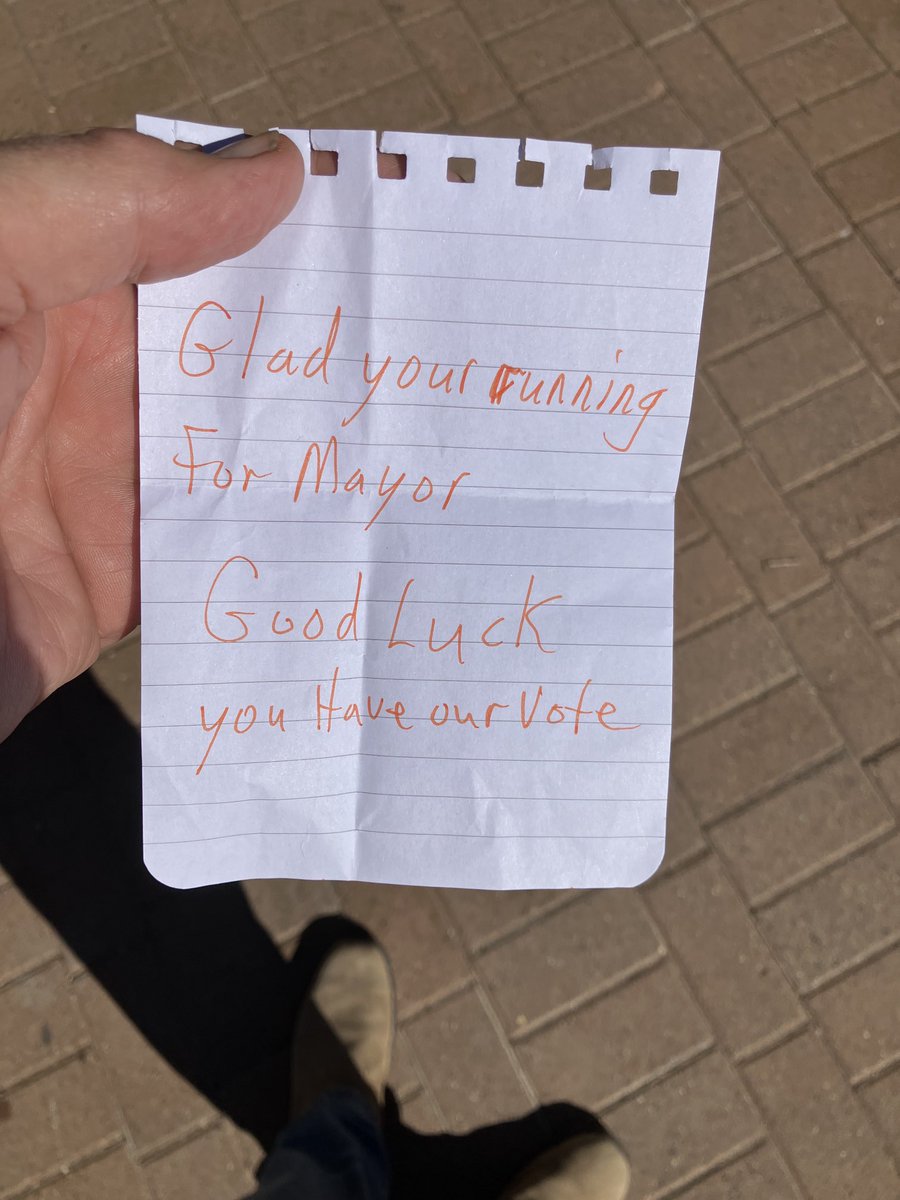 Glad your running
For Mayor
Good Luck
you Have our Vote